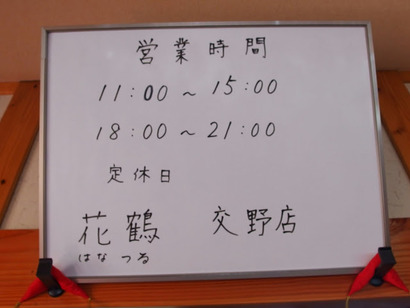 営業時間
11:00～15:00
18:00～21:00
定休日
花鶴 交野店
はなつる